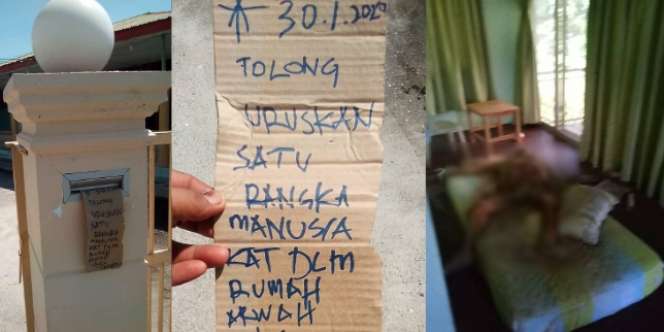 30.1.2020
TOLONG
URUSKAN
SATU
RANGKA
MANUSIA
KAT DLM
RUMAH
ARWAH